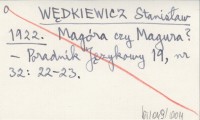 WĘDKIEWICZ Stanisław
1922. Magóra czy Magura?
— Poradnik Językowy 19, nr
32: 22-23.